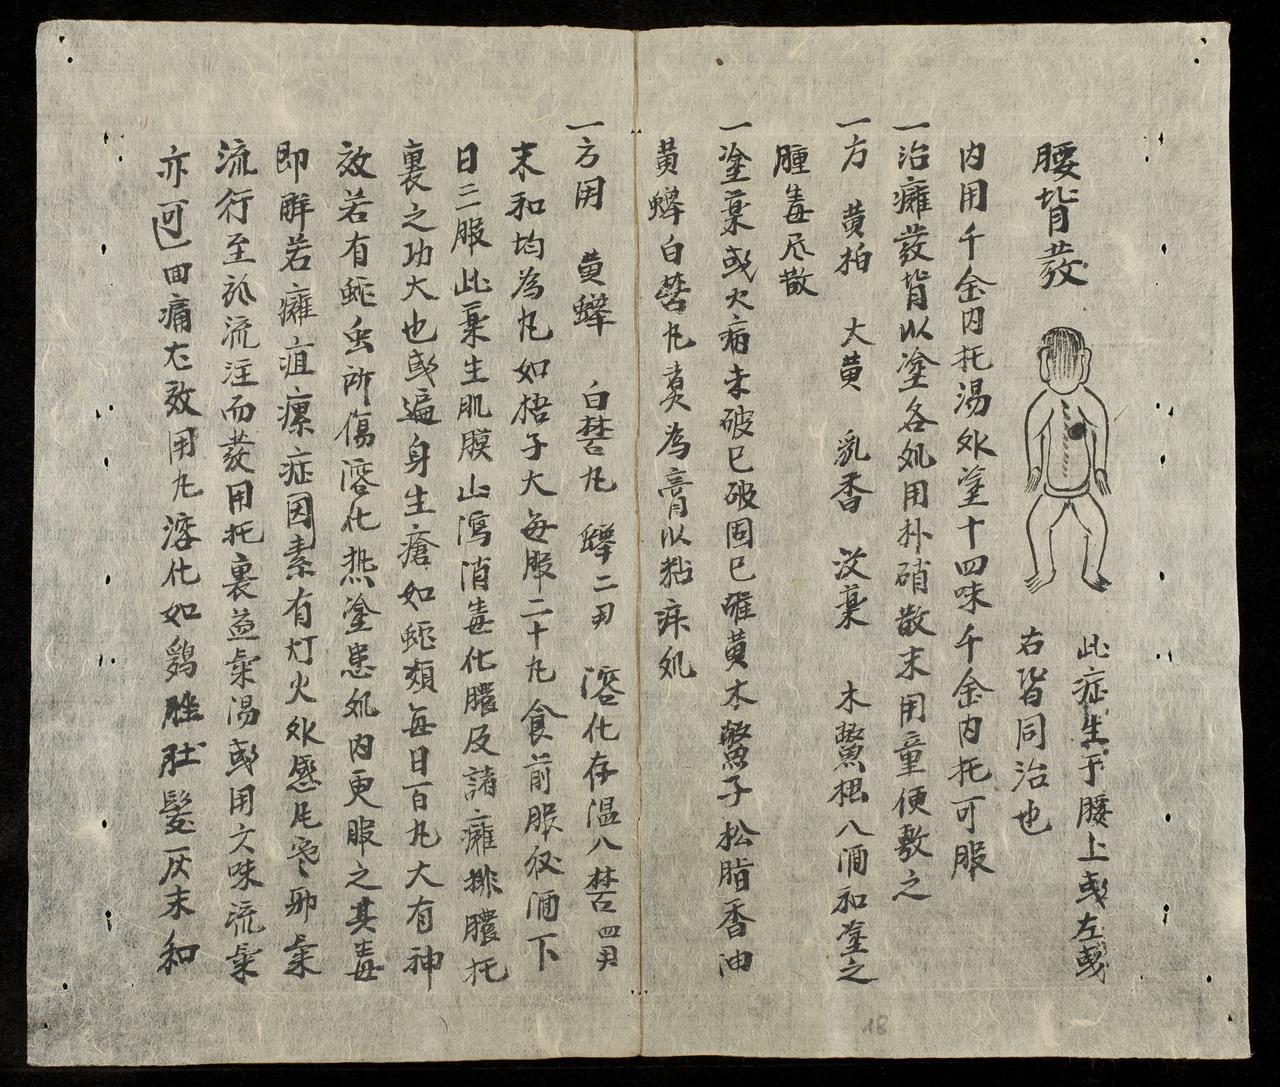 腰背發
此症生于腰上或左或
右皆同治也
内用千金内托湯外塗十四味千金内托可服
一治癰發背以塗各処用朴硝散末用童便敷之
一方 黄柏 大黄 乳香 没薬 木鱉 榅八酒和塗之
腫毒尽散
一塗薬或火病未破已破固已雄黄木鱉子松脂香油
黄蠟白礬丸煑為膏以粘疢処
一方用 黄蠟 白礬丸 蠟二両 溶化存温八礬四両
末和均為丸如梧子大每服二十丸食前服後酒下
日二服此薬生肌膜止瀉消毒化膿及諸癰排膿托
裏之功大也或遍身生瘡如蛇頭每日百丸大有神
效若有蛇虫所傷溶化热塗患処内更服之其毒
即觧若癰疽瘰症因素有灯火外感尾寒邪氣
流行至於流注而發用托裏益氣湯或用六味流氣
亦可 囬痛尤效用丸溶化如鷄 肚髮灰末和
18